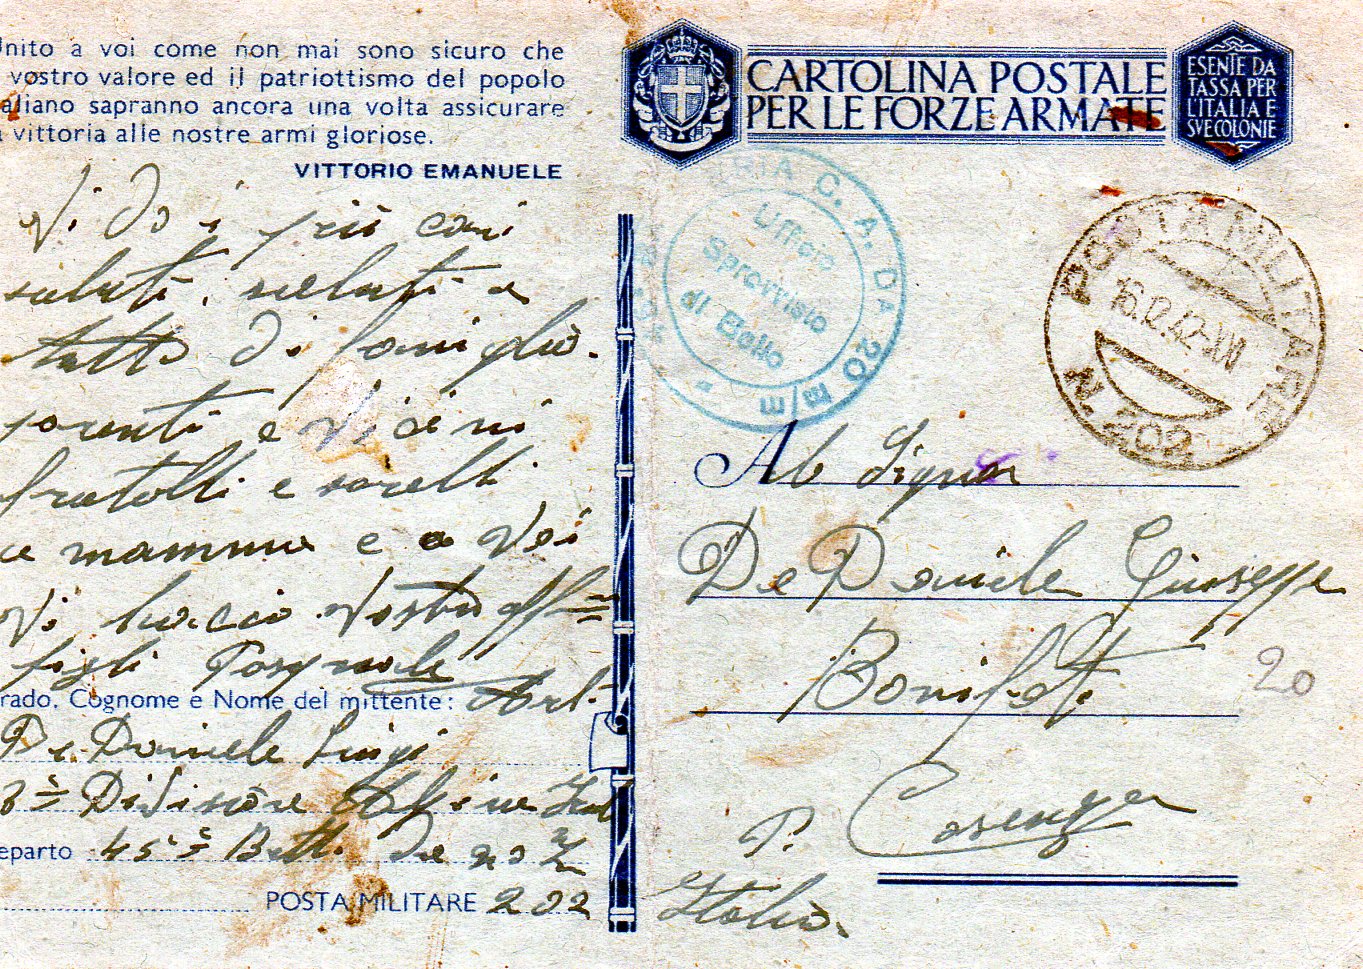 Unito a voi come non mai sono sicuro che
vostro valore ed il patriottismo del popolo
italiano sapranno ancora una volta assicurare
a vittoria alle nostre armi gloriose.
VITTORIO EMANUELE
Vi do i più cari
saluti,
tutti di famiglia.
parenti e vicini
fratelli e sorelli
e mamma e a Voi
Vi bacio Vostro aff=
figli Pasquale
rado, Cognome e Nome del mittente: Art.
De Daniele Luigi
3ª Divisione
eparto 45ª Batt. Da 20
POSTA MILITARE 202
CARTOLINA POSTALE
PER LE FORZE ARMATE
ESENTE DA
TASSA PER
L'ITALIA E
SVE COLONIE
C. A. DA 20 m/m
Ufficio
Sprovvisto
di Bollo
POSTA MILITARE
16.12.42-XXI
N. 202
Al Signor
De Daniele Giuseppe
Bonifati
20
P. Cosenza
Italia.